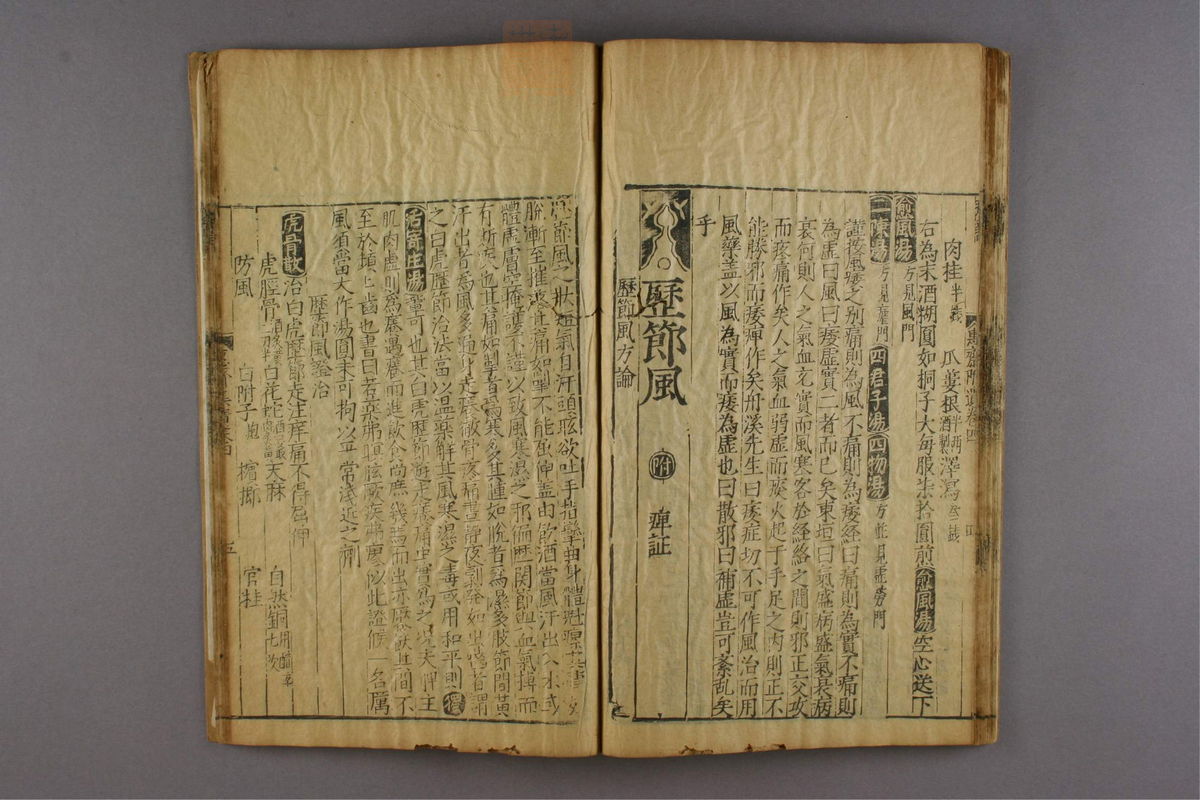 肉桂半錢 瓜蔞根半兩酒製 澤瀉叁錢
右為末酒糊圓如桐子大每服柒拾圓煎愈風湯空心送下
愈風湯方見風門
二陳湯方見 門 四君子湯四物湯方並見虛勞門
謹按風痿之別痛則為風不痛則為痿経曰痛則為實不痛則
為虛曰風曰痿虛實二者而已矣東垣曰氣盛病盛氣衰病
衰何則人之氣血充實而風寒客於経絡之間則邪正交攻
而疼痛作矣人之氣血弱虛而痰火起于手足之內則正不
能勝邪而痿痺作矣丹溪先生曰痿症切不可作風治而用
風藥盖以風為實而痿為虛也曰散邪曰補虛豈可紊乱矣
乎
歷節風 附 痺証
歷節風方論
歷節風之狀短氣自汗頭眩欲吐手指攣曲身體
脫漸至摧 其痛如掣不能屈伸盖由飲酒當風汗出入水或
體虛膚空掩護不謹以致風寒濕之邪徧歷関節與血氣搏而
有斯疾也其痛如掣者為寒多其腫如脫者為濕多肢節間黃
汗出者為風多遍身走痒徹骨疼痛晝靜夜劇 如虫嚙者謂
之曰虎歷節治法當以温藥解其風寒濕之毒或用和平則獨
活寄生湯 可也其白虎歷節遊走痒痛虫實為之 夫脾主
肌肉虛則為 遇 而進飲食 而出 其間不
至於 上齒也書曰若藥弗瞑眩厥疾弗瘳以此證候一名厲
風須當大作湯圓末可拘以尋常淺近之劑
歷節風證治
虎骨散治白虎歷節走注痒痛不得屈伸
虎脛骨二兩 白花蛇 天麻 自然銅用醋 七次
防風 白附子炮 檳榔 官桂